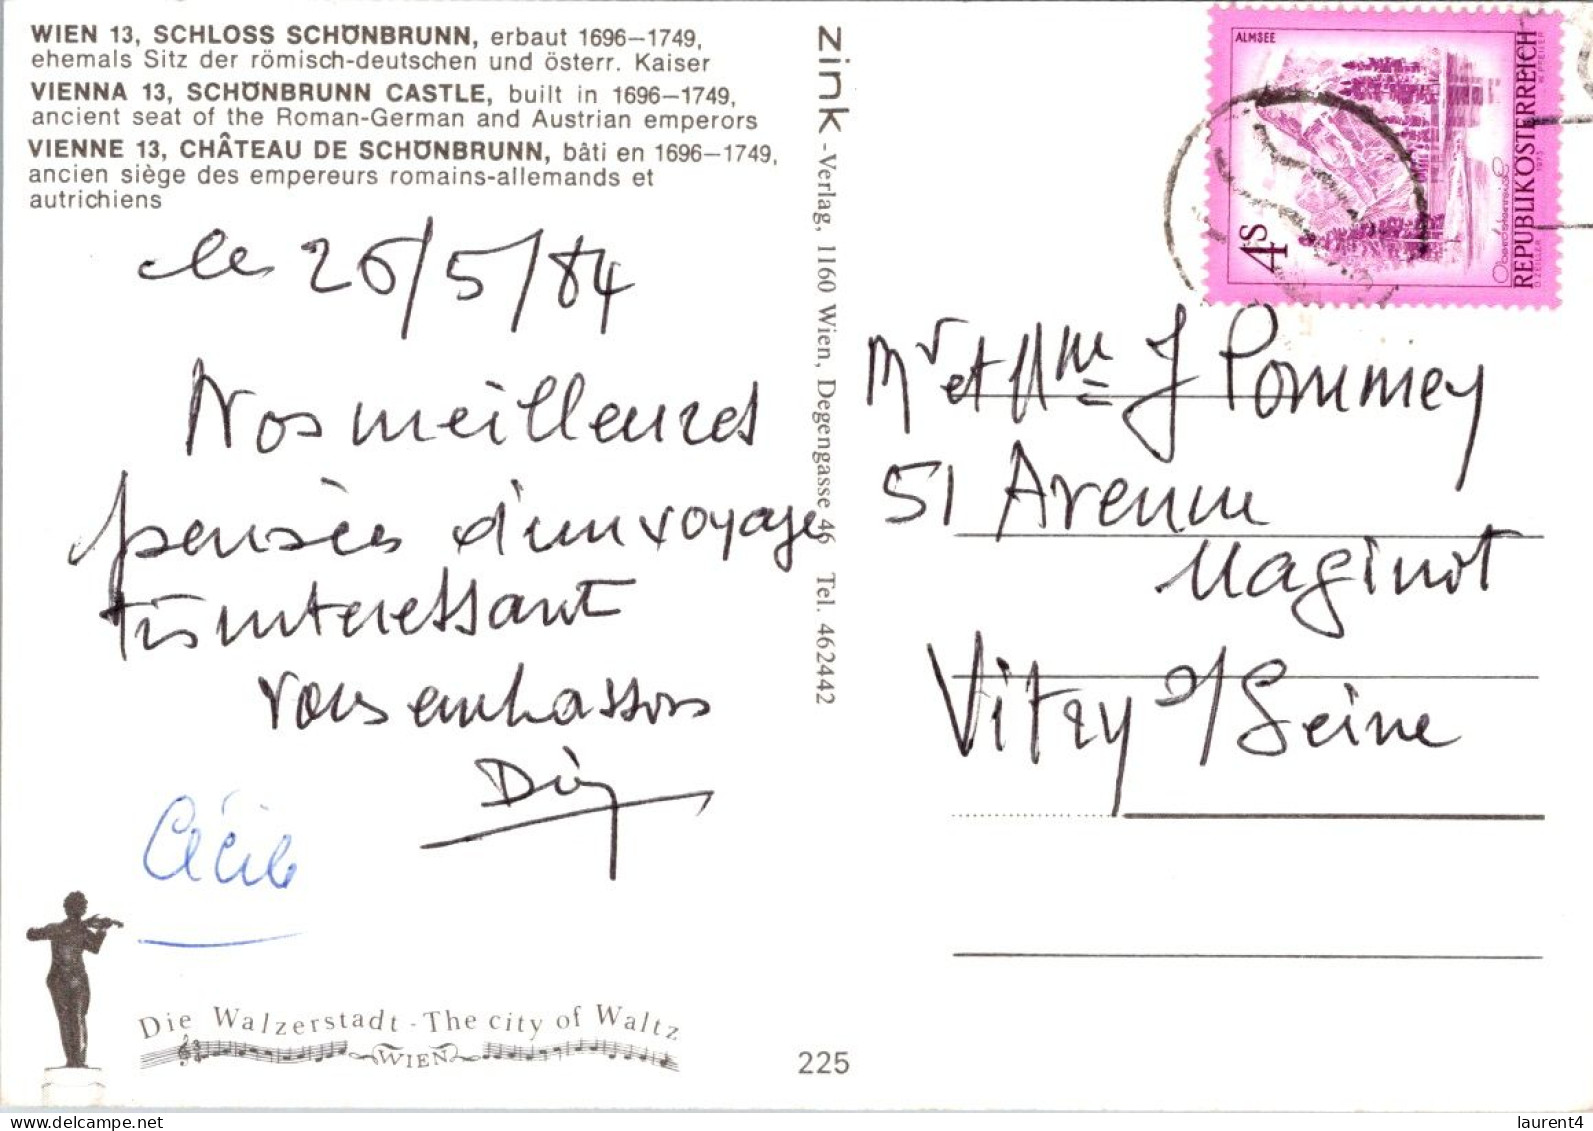 WIEN 13, SCHLOSS SCHÖNBRUNN, erbaut 1696–1749,
ehemals Sitz der römisch-deutschen und österr. Kaiser
VIENNA 13, SCHÖNBRUNN CASTLE, built in 1696–1749,
ancient seat of the Roman-German and Austrian emperors
VIENNE 13, CHÂTEAU DE SCHÖNBRUNN, bâti en 1696–1749,
ancien siège des empereurs romains-allemands et
autrichiens
le 26/5/84
Nos meilleures
pensées d'un voyage
très intéressant
vous embrassons
Cécile
Die Walzerstadt - The city of Waltz
WIEN
zink - Verlag, 1160 Wien, Degengasse 46 Tel. 462442
225
ALMSEE
4S
REPUBLIK ÖSTERREICH
Mr et Mme J Pommey
51 Avenue
Maginot
Vitry s/ Seine
www.delcampe.net
laurent4